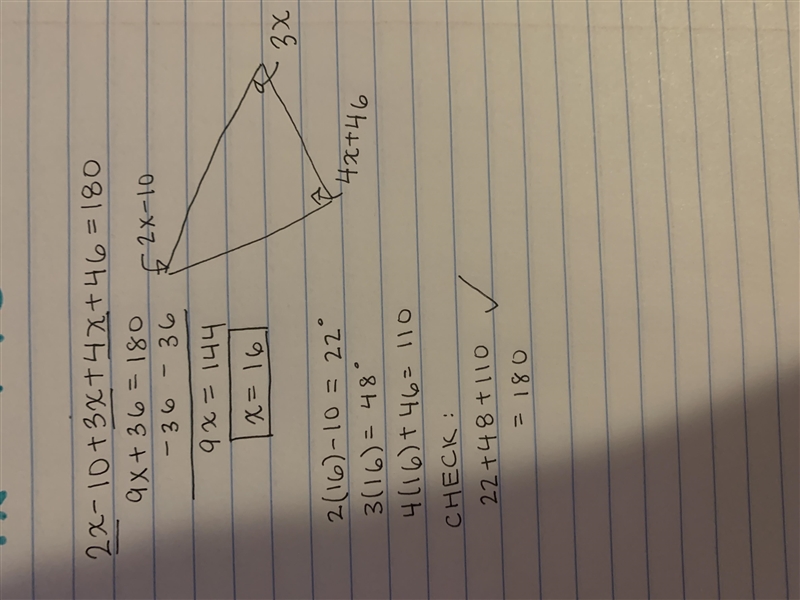 2x-10+3x+4x+46=180
9x+36=180
-36 -36
9x=144
x=16
2x-10
3x
4x+46
2(16)-10=22°
3(16)=48°
4(16)+46=110
CHECK:
22+48+110 ✓
=180